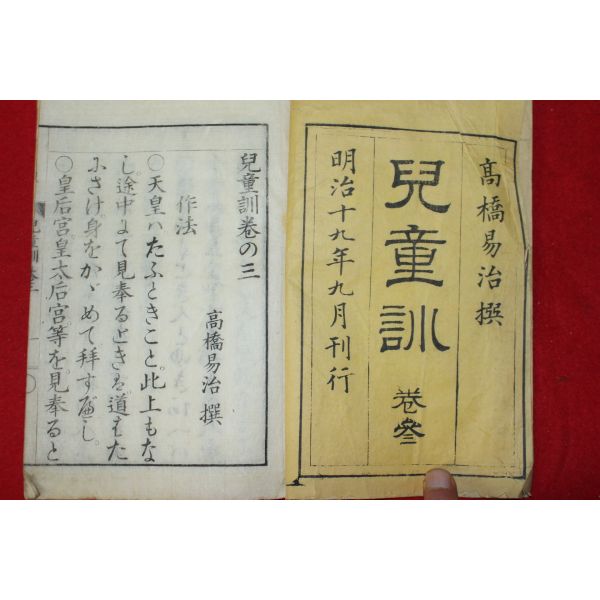 髙橋易治撰
兒童訓 卷叅
明治十九年九月刊行
兒童訓卷の三
高橋易治 撰
作法
○天皇ハたふときこと此上もな
し途中にて見奉るときは道はた
にさけ身をかゞめて拜すべし。
○皇后宮皇太后宮等を見奉ると